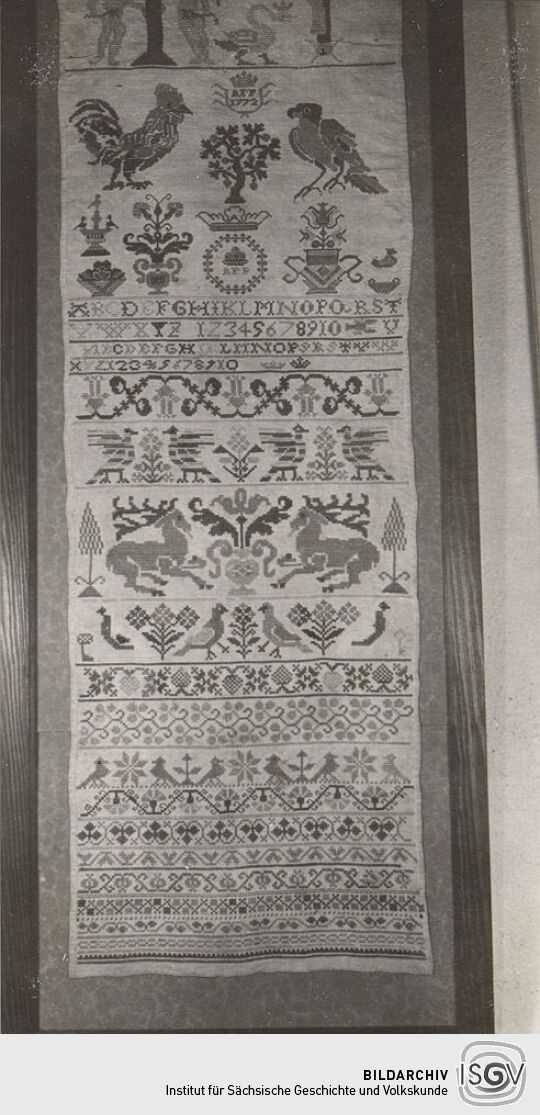 1772
ABCDEFGHIKLMNOPQRST
VWXYZ 12345678910
ABCDEFGH
XYZ12345678910
BILDARCHIV
Institut für Sächsische Geschichte und Volkskunde
ISGV